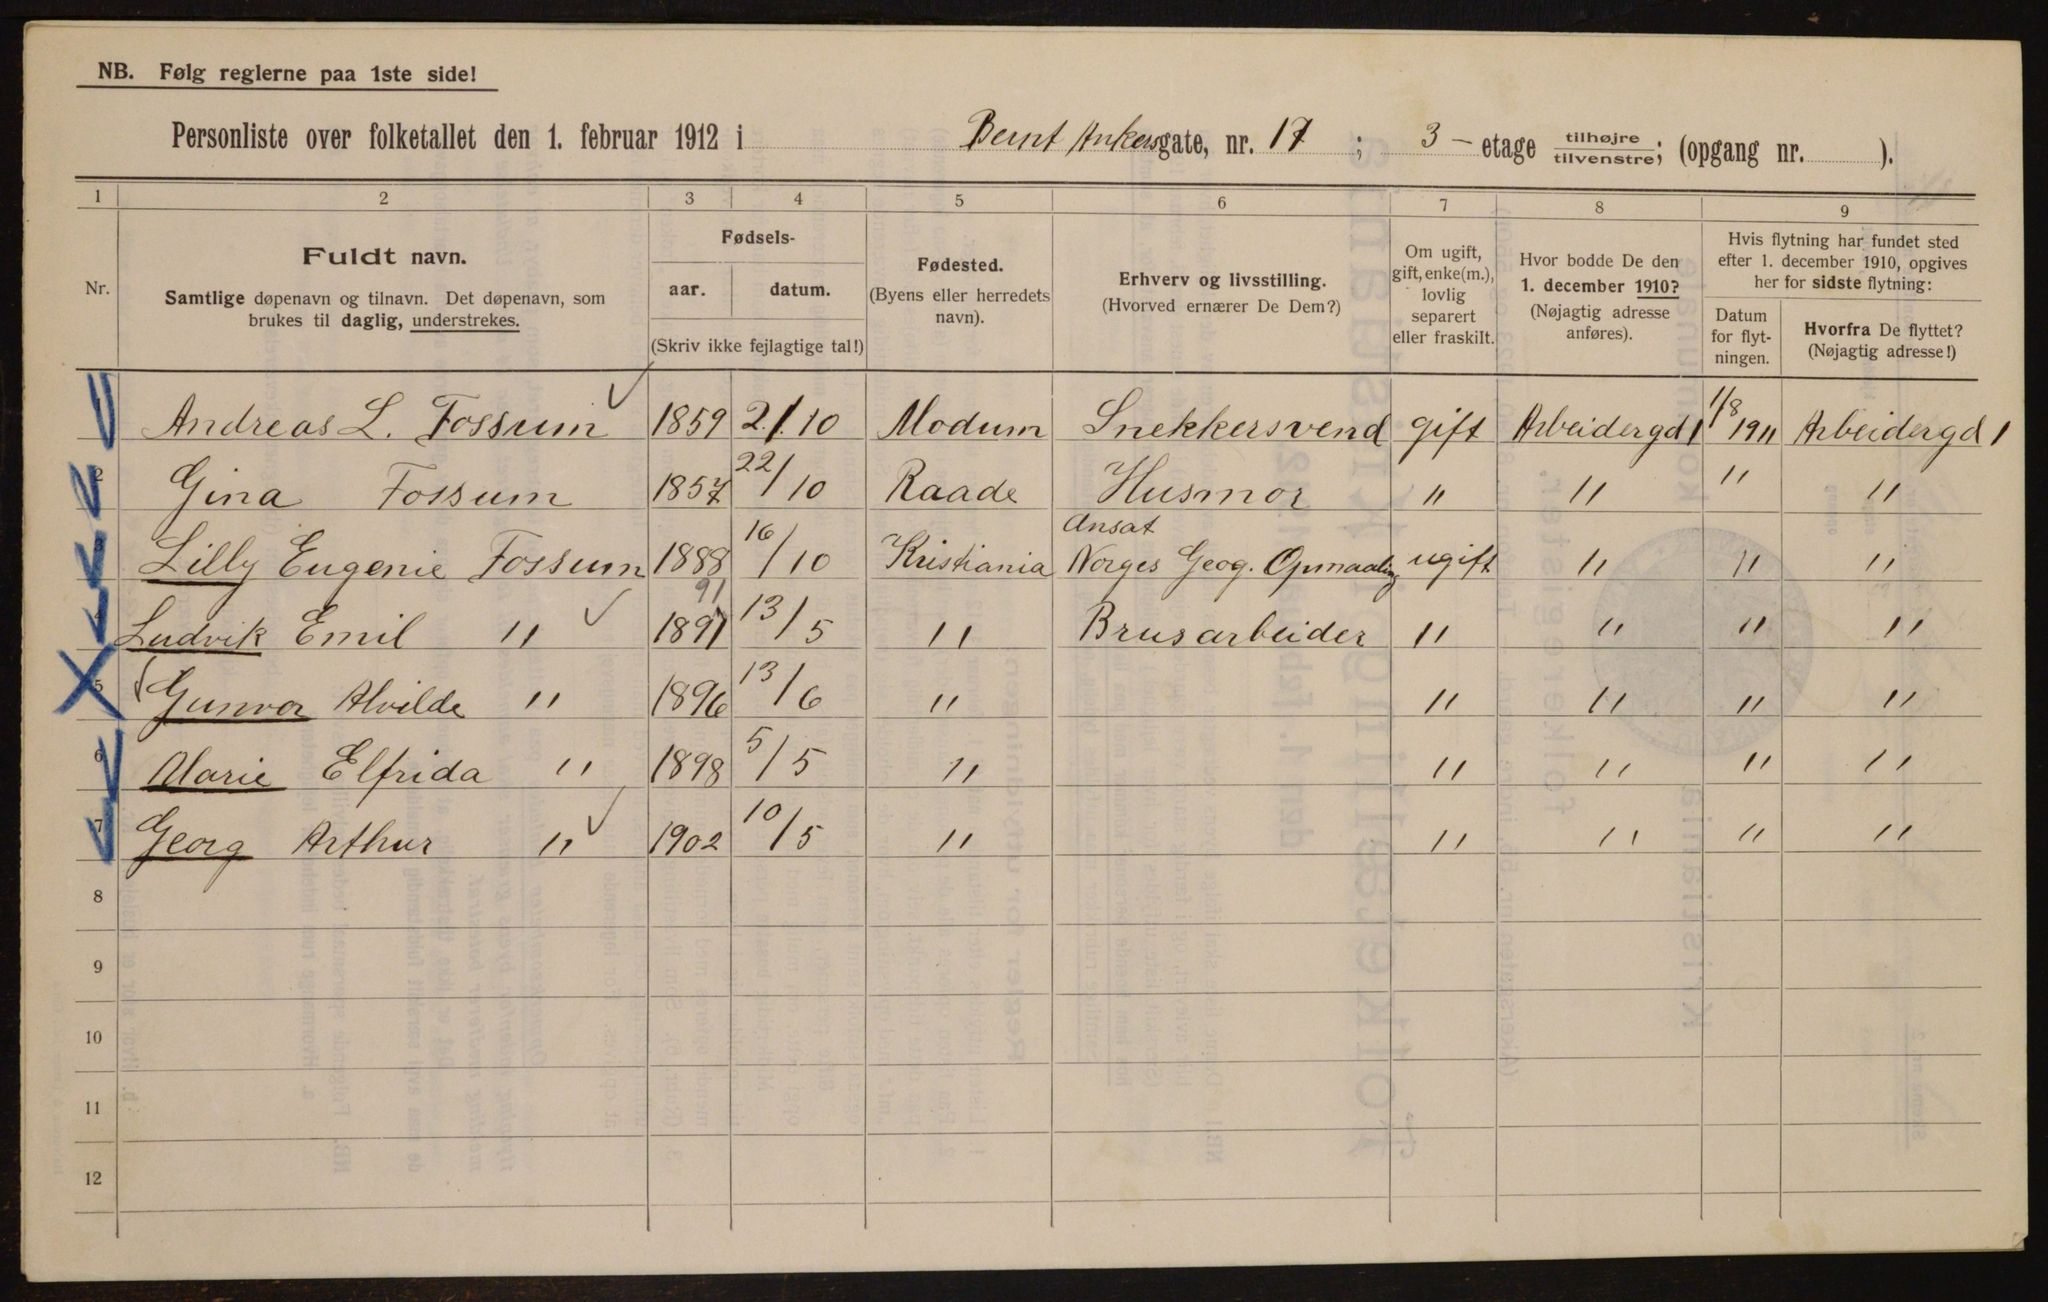 NB. Følg reglerne paa 1ste side!
Personliste over folketallet den 1. februar 1912 i Bernt Ankersgate, nr. 17 ; 3 - etage tilhøjre/tilvenstre; (opgang nr. ).
1 2 3 4 5 6 7 8 9
Nr.
Fuldt navn.
Samtlige døpenavn og tilnavn. Det døpenavn, som
brukes til daglig, understrekes.
Fødsels-
aar. datum.
(Skriv ikke fejlagtige tal!)
Fødested.
(Byens eller herredets
navn).
Erhverv og livsstilling.
(Hvorved ernærer De Dem?)
Om ugift,
gift, enke(m.),
lovlig
separert
eller fraskilt.
Hvor bodde De den
1. december 1910?
(Nøjagtig adresse
anføres).
Hvis flytning har fundet sted
efter 1. december 1910, opgives
her for sidste flytning:
Datum
for flyt-
ningen.
Hvorfra De flyttet?
(Nøjagtig adresse!)
1 Andreas L. Fossum 1859 2/10 Modum Snekkersvend gift Arbeidergd 1 1/8 1911 Arbeidergd 1
2 Gina Fossum 1857 22/10 Raade Husmor " " " "
3 Lilly Eugenie Fossum 1888 16/10 Kristiania Ansat
Norges Geog. Opmaaling ugift " " "
91
4 Ludvik Emil " 1891 13/5 " Brusarbeider " " " "
5 Gunvor Alvilde " 1896 13/6 " " " " "
6 Marie Elfrida " 1898 5/5 " " " " "
7 Georg Arthur " 1902 10/5 " " " " "
8
9
10
11
12